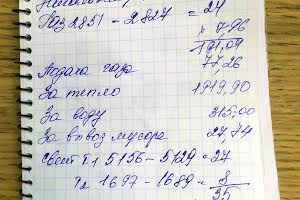 Газ 2851 - 2827 = 24
x 7-96
191,04
Подача газа 77,26
За тепло 1919,90
За воду 315,00
За вывоз мусора 27,74
свет T1 5156 - 5129 = 27
T2 1697 - 1689 = 8
35